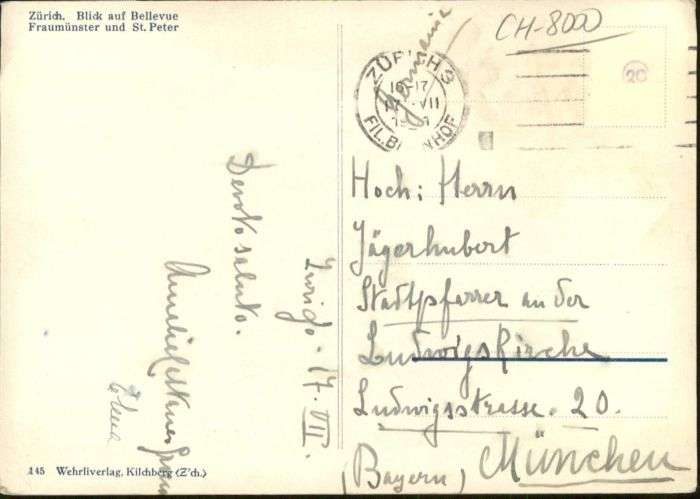 Zürich. Blick auf Bellevue
Fraumünster und St. Peter
Germania
CH-8000
ZÜRICH 3
17 VII
20
Zurigo. 17. VII.
Devoto saluto.
Elena
Hoch: Herrn
Jägerhubert
Stadtpfarrer an der
Ludwigskirche
Ludwigsstrasse. 20.
(Bayern) München
145 Wehrliverlag, Kilchberg (Z'ch.)